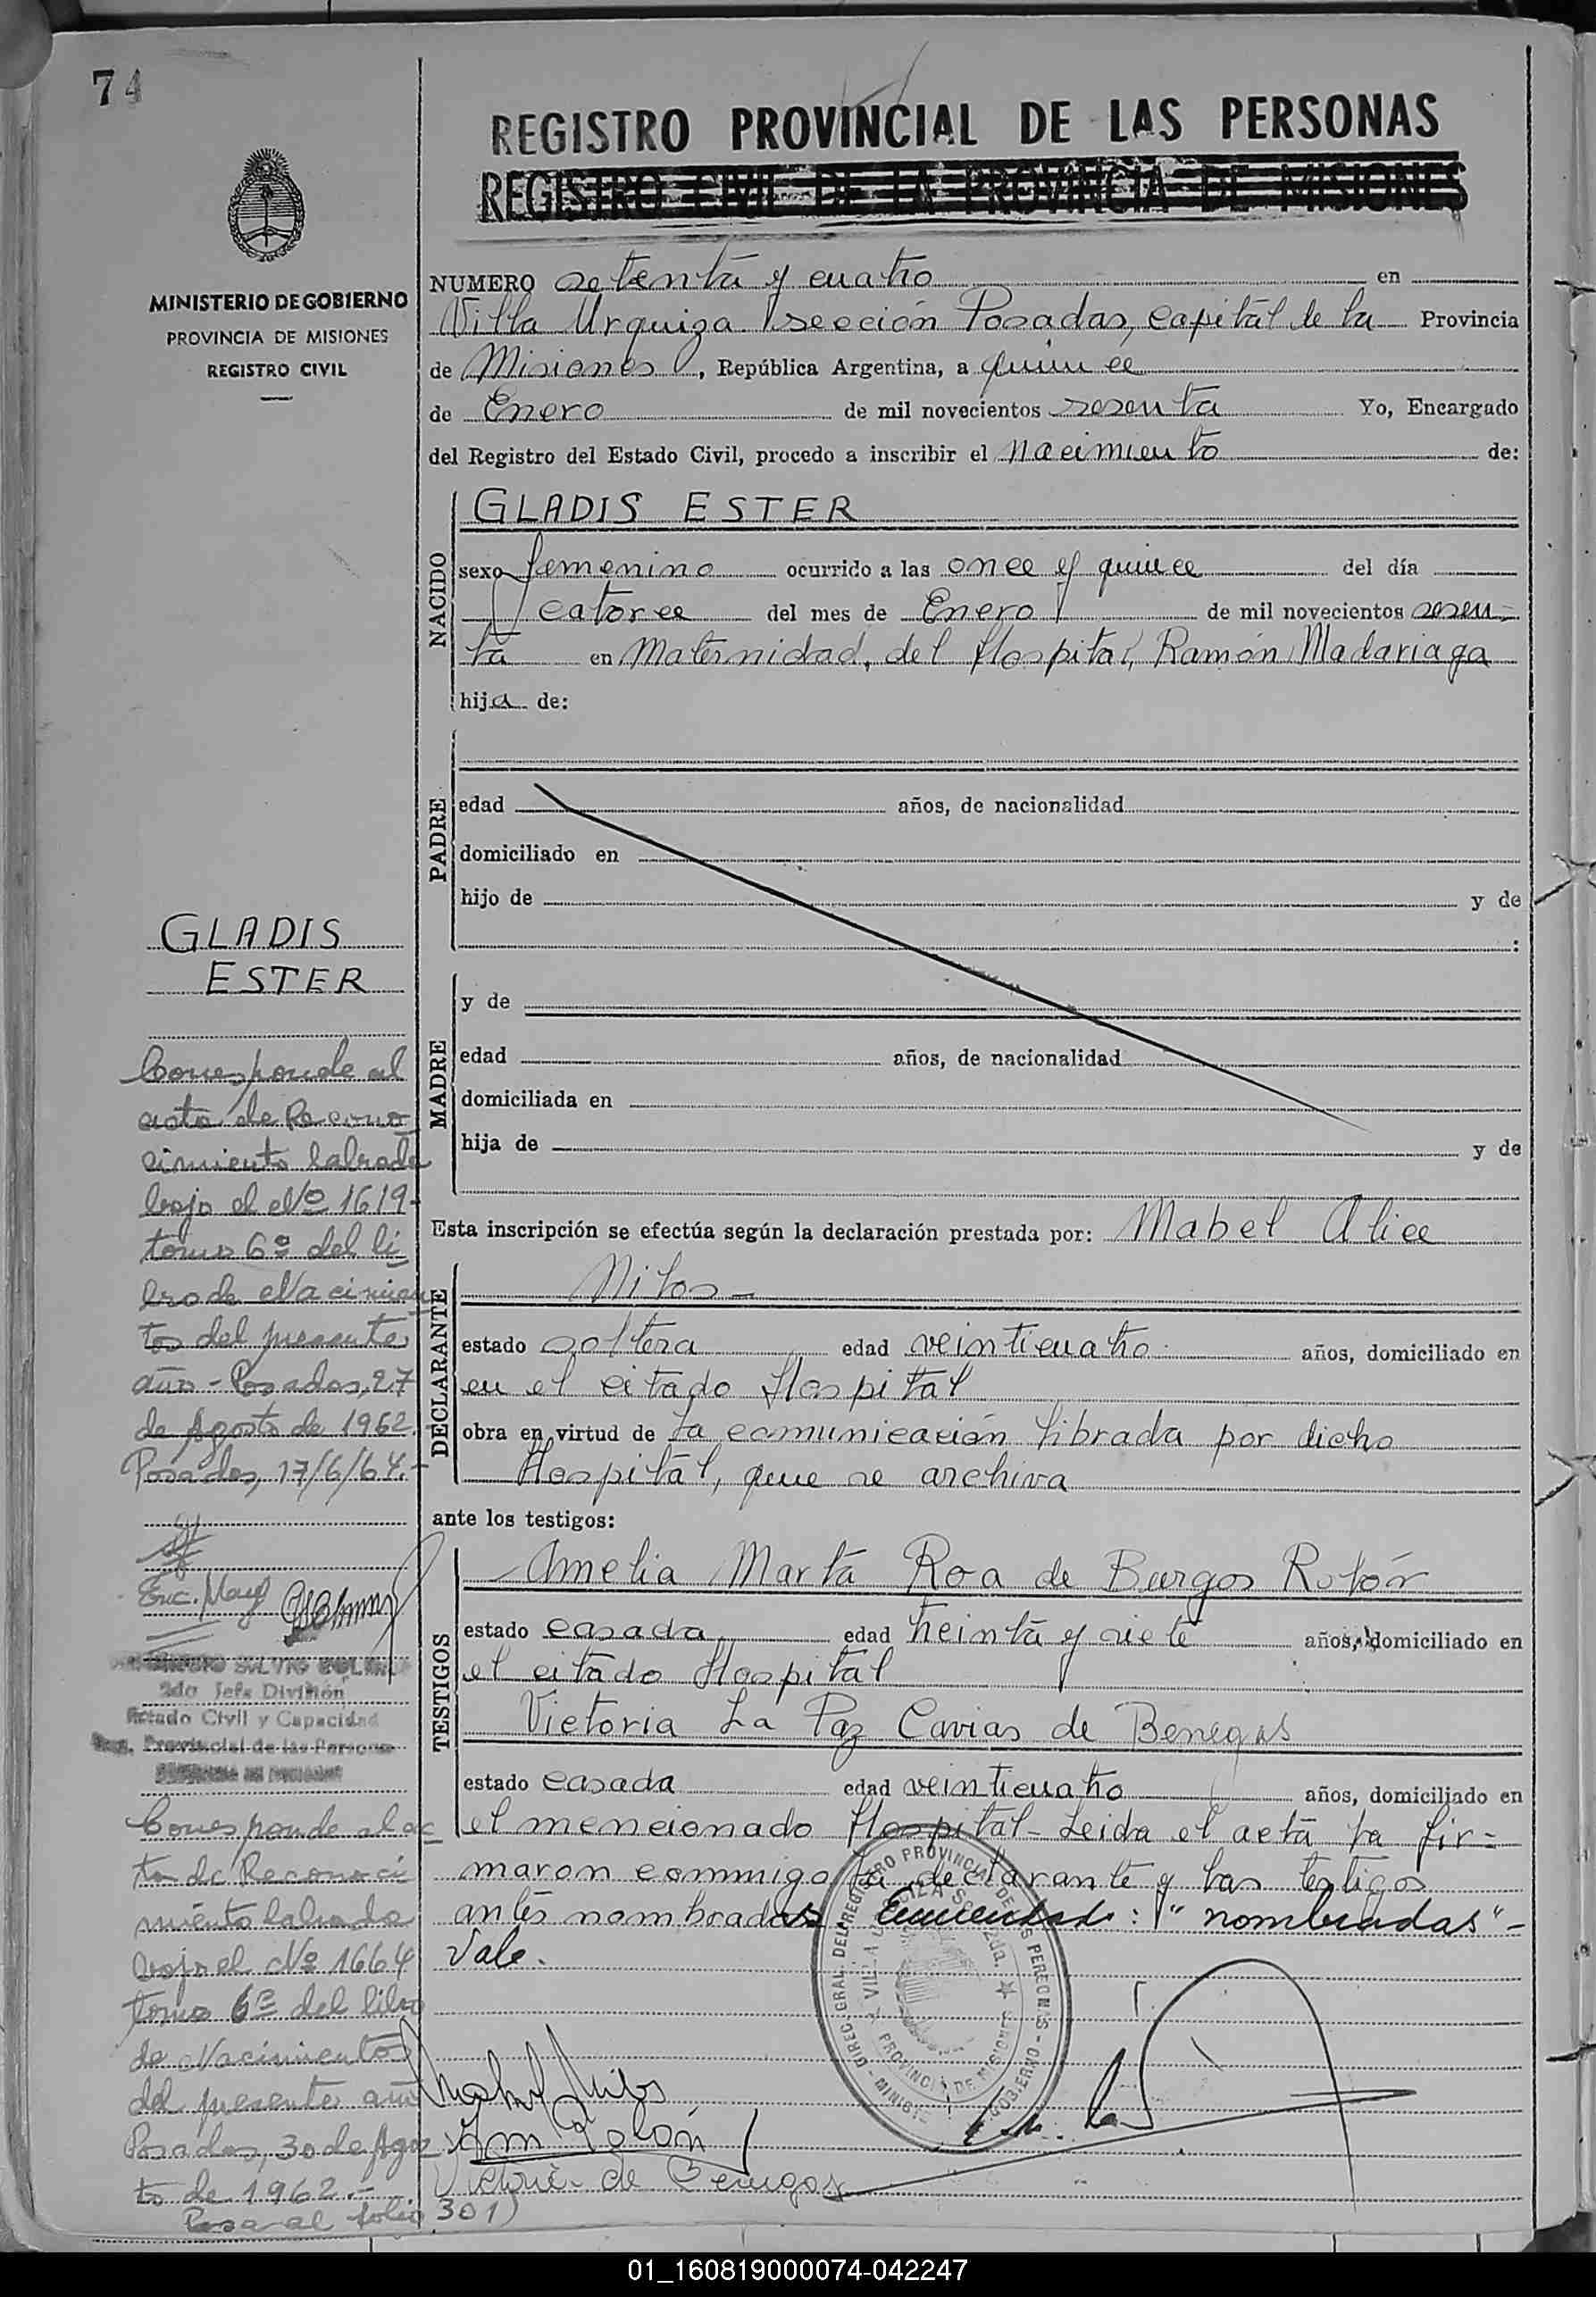 74
MINISTERIO DE GOBIERNO
PROVINCIA DE MISIONES
REGISTRO CIVIL
REGISTRO PROVINCIAL DE LAS PERSONAS
REGISTRO CIVIL DE LA PROVINCIA DE MISIONES
NUMERO setenta y cuatro en
Villa Urquiza sección Posadas, capital de la Provincia
de Misiones, República Argentina, a quince
de Enero de mil novecientos sesenta Yo, Encargado
del Registro del Estado Civil, procedo a inscribir el nacimiento de:
NACIDO
GLADIS ESTER
sexo femenino ocurrido a las once y quince del día
catorce del mes de Enero de mil novecientos sesen-
ta en Maternidad, del Hospital, Ramón Madariaga
hija de:
PADRE
edad años, de nacionalidad
domiciliado en
hijo de y de
:
MADRE
y de
edad años, de nacionalidad
domiciliada en
hija de y de
Esta inscripción se efectúa según la declaración prestada por: Mabel Alice
DECLARANTE
Milos -
estado soltera edad veinticuatro años, domiciliado en
en el citado Hospital
obra en virtud de la comunicación librada por dicho
Hospital, que se archiva
ante los testigos:
TESTIGOS
Amelia Marta Roa de Burgos Rolón
estado casada edad treinta y siete años, domiciliado en
el citado Hospital
Victoria La Paz Cavias de Benegas
estado casada edad veinticuatro años, domiciliado en
el mencionado Hospital - Leida el acta la fir=
maron conmigo la declarante y las testigos
antes nombradas. Enmendado: "nombradas" -
Vale.
DIREC. GRAL. DEL REGISTRO PROVINCIAL DE LAS PERSONAS
PROVINCIA DE MISIONES
Mabel Milos
Am Rolón
Victoria de Benegas
GLADIS
ESTER
Corresponde al
acta de Recono
cimiento labrada
bajo el Nº 1619-
tomo 6º del li
bro de Nacimien
tos del presente
año - Posadas, 27
de Agosto de 1962.
Posadas, 17/6/64.-
Enc. May
2do Jefe División
Estado Civil y Capacidad
Reg. Provincial de las Personas
Corresponde al ac
ta de Reconoci
miento labrada
bajo el Nº 1664
tomo 6º del libro
de Nacimientos
del presente año
Posadas, 30 de Agos
to de 1962.-
Pasa al folio 301)
01_160819000074-042247